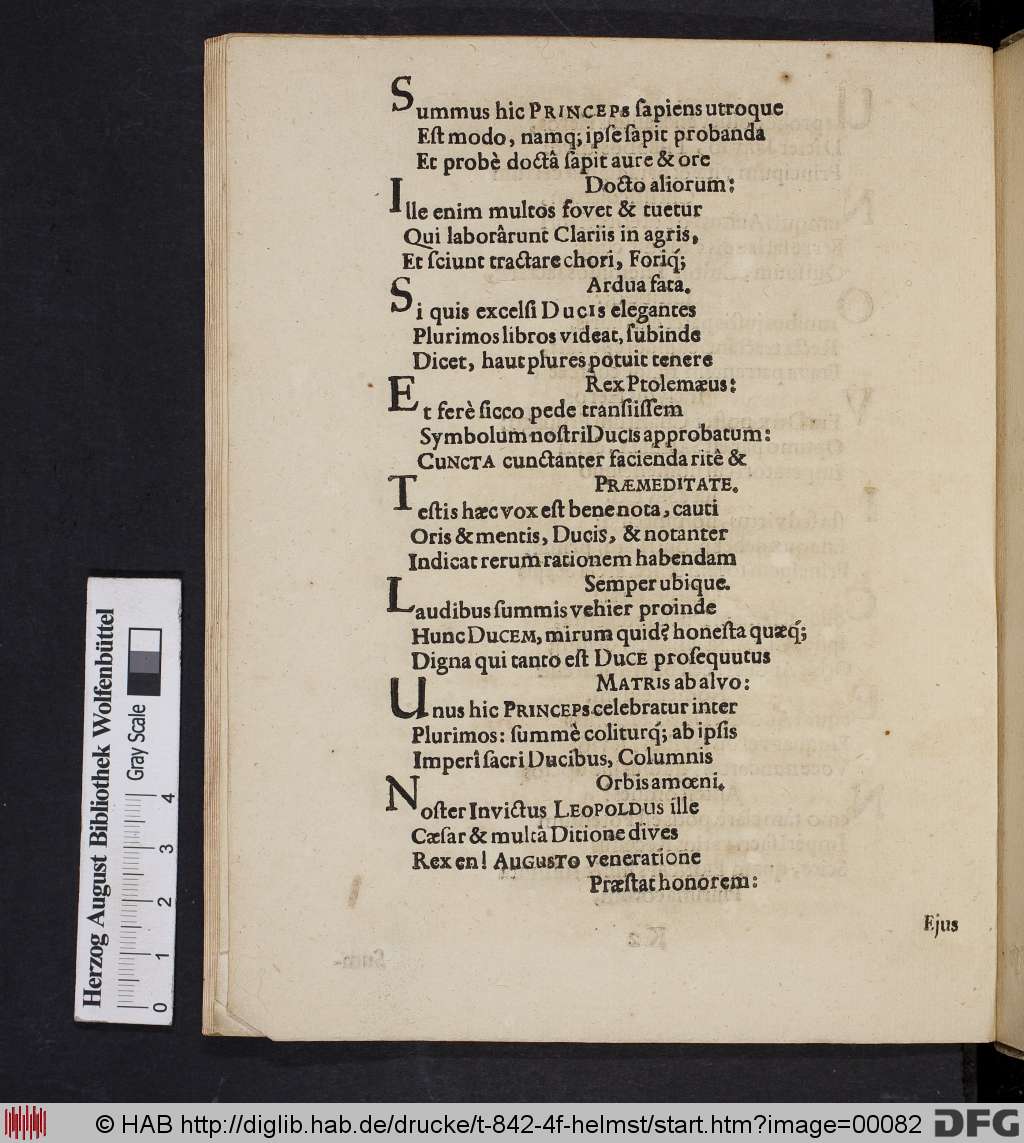 Summus hic PRINCEPS sapiens utroque
Est modo, namq; ipse sapit probanda
Et probè doctâ sapit aure & ore
Docto aliorum:
Ille enim multos fovet & tuetur
Qui laborârunt Clariis in agris,
Et sciunt tractare chori, Foriq́;
Ardua fata.
Si quis excelsi DUCIS elegantes
Plurimos libros videat, subinde
Dicet, haut plures potuit tenere
Rex Ptolemæus:
Et ferè sicco pede transiissem
Symbolum nostri DUCIS approbatum:
CUNCTA cunctanter facienda ritè &
PRÆMEDITATE.
Testis hæc vox est bene nota, cauti
Oris & mentis, Ducis, & notanter
Indicat rerum rationem habendam
Semper ubique.
Laudibus summis vehier proinde
Hunc DUCEM, mirum quid? honesta quæq́;
Digna qui tanto est DUCE prosequutus
MATRIS ab alvo:
Unus hic PRINCEPS celebratur inter
Plurimos: summè coliturq́; ab ipsis
Imperî sacri Ducibus, Columnis
Orbis amœni.
Noster Invictus LEOPOLDUS ille
Cæsar & multâ Ditione dives
Rex en! AUGUSTO veneratione
Præstat honorem:
Ejus
Herzog August Bibliothek Wolfenbüttel
Gray Scale
0 1 2 3 4
© HAB http://diglib.hab.de/drucke/t-842-4f-helmst/start.htm?image=00082
DFG